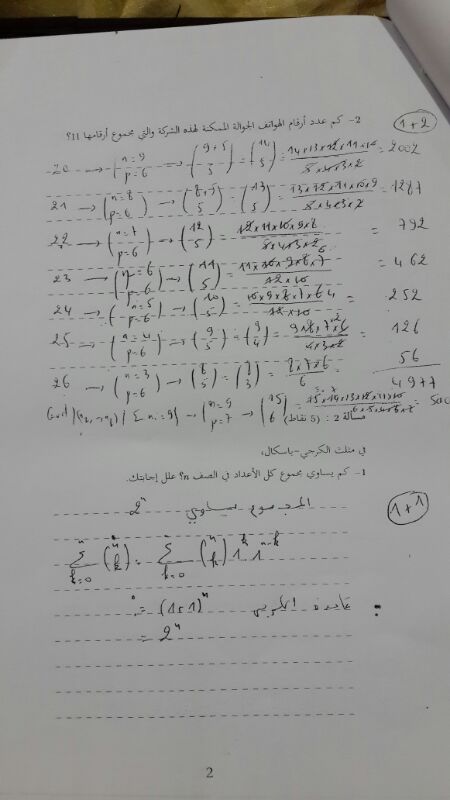 2- كم عدد أرقام الهواتف الجوالة الممكنة لهذه الشركة والتي مجموع أرقامها 11؟
1+2
20 → (n=9 p=6) → (9+5 5) = (14 5) = 14×13×12×11×10 / 5×4×3×2 = 2002
21 → (n=8 p=6) → (8+5 5) = (13 5) = 13×12×11×10×9 / 5×4×3×2 = 1287
22 → (n=7 p=6) → (12 5) = 12×11×10×9×8 / 5×4×3×2 = 792
23 → (n=6 p=6) → (11 5) = 11×10×9×8×7 / 12×10 = 462
24 → (n=5 p=6) → (10 5) = 10×9×8×7×6 / 12×10 = 252
25 → (n=4 p=6) → (9 5) = (9 4) = 9×8×7×6 / 4×3×2 = 126
26 → (n=3 p=6) → (8 5) = (8 3) = 8×7×6 / 6 = 56
4977
→ (n=9 p=7) → (15 6) = 15×14×13×12×11×10 / 6×5×4×3×2 = 500
مسألة 2 : (5 نقاط)
في مثلث الكرجي-باسكال،
1- كم يساوي مجموع كل الأعداد في الصف n؟ علل إجابتك.
1+1
المجموع يساوي 2ⁿ
∑ₖ₌₀ⁿ (n k) = ∑ₖ₌₀ⁿ (n k) 1ᵏ 1ⁿ⁻ᵏ
= (1+1)ⁿ
= 2ⁿ
2